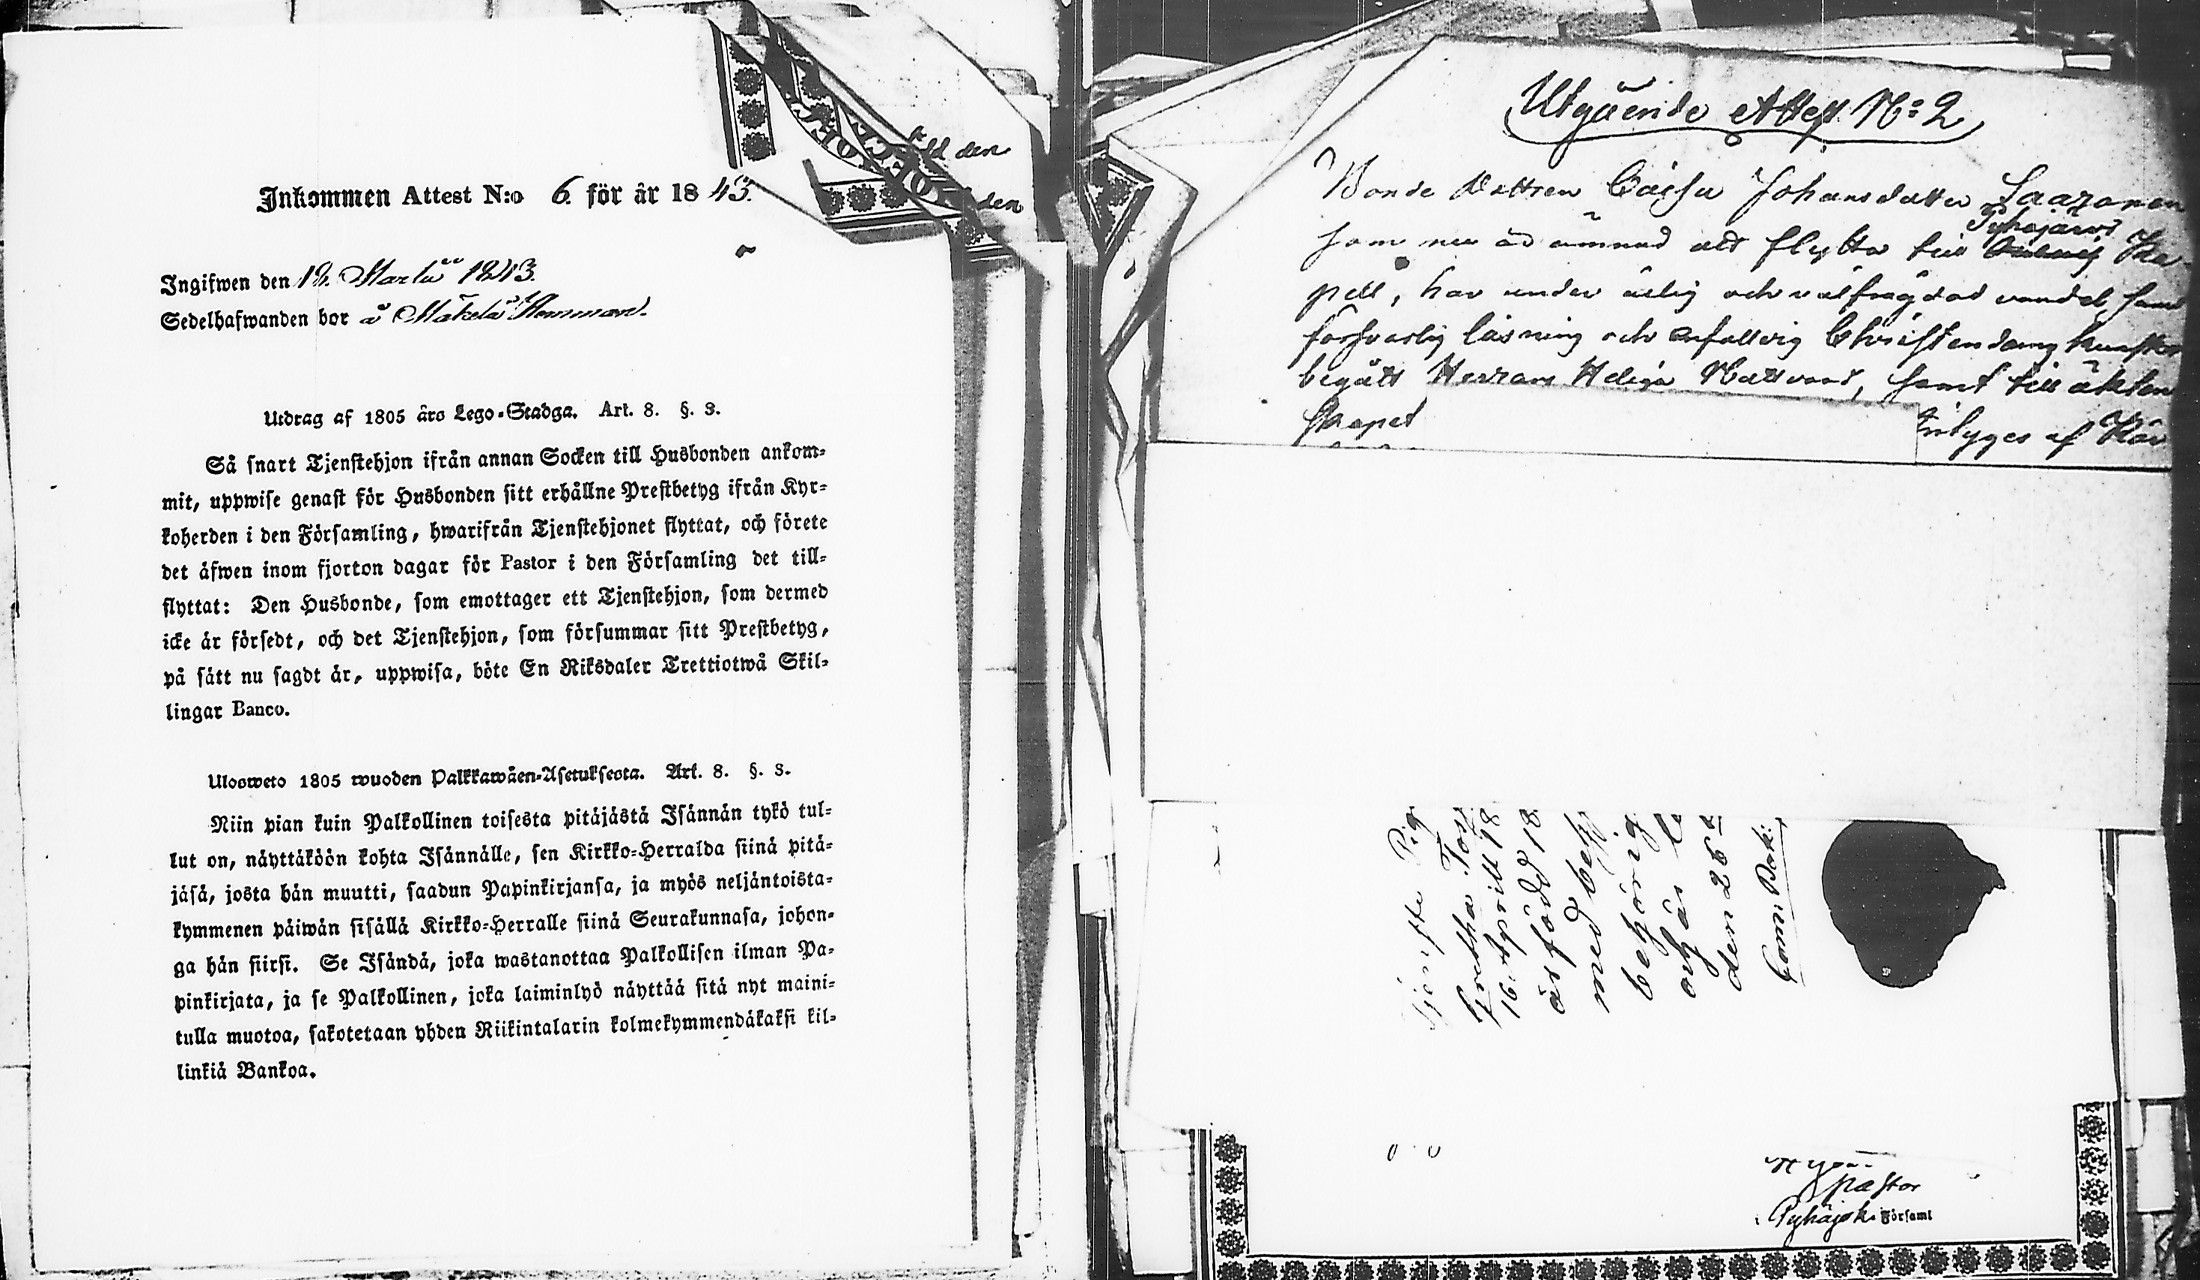 Inkommen Attest N:o 6. för år 1843.
Ingifwen den 12. Martii 1843.
Sedelhafwanden bor å Mäkelä Hemman.
Utdrag af 1805 års Lego-Stadga. Art. 8. §. 3.
Så snart Tjenstehjon ifrån annan Socken till Husbonden ankom-
mit, uppwise genast för Husbonden sitt erhållne Prestbetyg ifrån Kyr-
koherden i den Församling, hwarifrån Tjenstehjonet flyttat, och förete
det äfwen inom fjorton dagar för Pastor i den Församling det till-
flyttat: Den Husbonde, som emottager ett Tjenstehjon, som dermed
icke är försedt, och det Tjenstehjon, som försummar sitt Prestbetyg,
på sätt nu sagdt är, uppwisa, böte En Riksdaler Trettiotwå Skil-
lingar Banco.
Ulosweto 1805 wuoden Palkkawäen-Asetuksesta. Art. 8. §. 3.
Niin pian kuin Palkollinen toisesta pitäjästä Isännän tykö tul-
lut on, näyttäköön kohta Isännälle, sen Kirkko-Herralda siinä pitä-
jäsä, josta hän muutti, saadun Papinkirjansa, ja myös neljäntoista-
kymmenen päiwän sisällä Kirkko-Herralle siinä Seurakunnasa, johon-
ga hän siirsi. Se Isändä, joka wastanottaa Palkollisen ilman Pa-
pinkirjata, ja se Palkollinen, joka laiminlyö näyttää sitä nyt maini-
tulla muotoa, sakotetaan yhden Riikintalarin kolmekymmendäkaksi kil-
linkiä Bankoa.
den
den
Utgående Attest. No 2
Bonde Dottren Caisa Johansdotter Saaranen
som nu är ämnad att flytta till Pyhäjärvi Ka-
pell, har under ärlig och välfrägdad vandel samt
försvarlig läsning och enfaldig Christendoms kunskap
begått Herrans Heliga Nattvard, samt till äkten
skapet
Intygas af Kär
Tjenste Pig
Gretha Tos
16. April 18
är född 18
med bes
behörig
och lä
den 26
Com. Pak:
Pastor
Församl